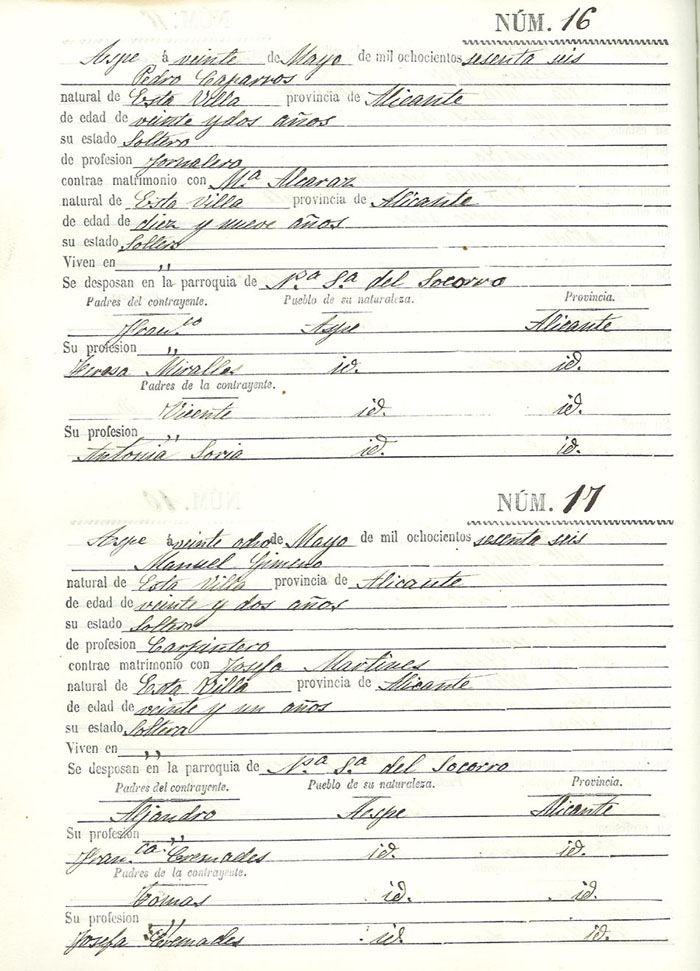 NÚM. 16
Aspe á veinte de Mayo de mil ochocientos sesenta seis
Pedro Caparros
natural de Esta Villa provincia de Alicante
de edad de veinte y dos años
su estado Soltero
de profesion Jornalero
contrae matrimonio con Mª Alcaraz
natural de Esta Villa provincia de Alicante
de edad de diez y nueve años
su estado Soltera
Viven en ,,
Se desposan en la parroquia de Nª Sª del Socorro
Padres del contrayente. Pueblo de su naturaleza. Provincia.
Franco Aspe Alicante
Su profesion ,,
Teresa Miralles id. id.
Padres de la contrayente.
Vicente id. id.
Su profesion ,,
Antonia Soria id. id.
NÚM. 17
Aspe á veinte ocho de Mayo de mil ochocientos sesenta seis
Manuel Gimeno
natural de Esta Villa provincia de Alicante
de edad de veinte y dos años
su estado Soltero
de profesion Carpintero
contrae matrimonio con Josefa Martines
natural de Esta Villa provincia de Alicante
de edad de veinte y un años
su estado Soltera
Viven en ,,
Se desposan en la parroquia de Nª Sª del Socorro
Padres del contrayente. Pueblo de su naturaleza. Provincia.
Aljandro Aespe Alicante
Su profesion ,,
Fran.ca Cremades id. id.
Padres de la contrayente.
Tomas id. id.
Su profesion ,,
Josefa Cremades id. id.